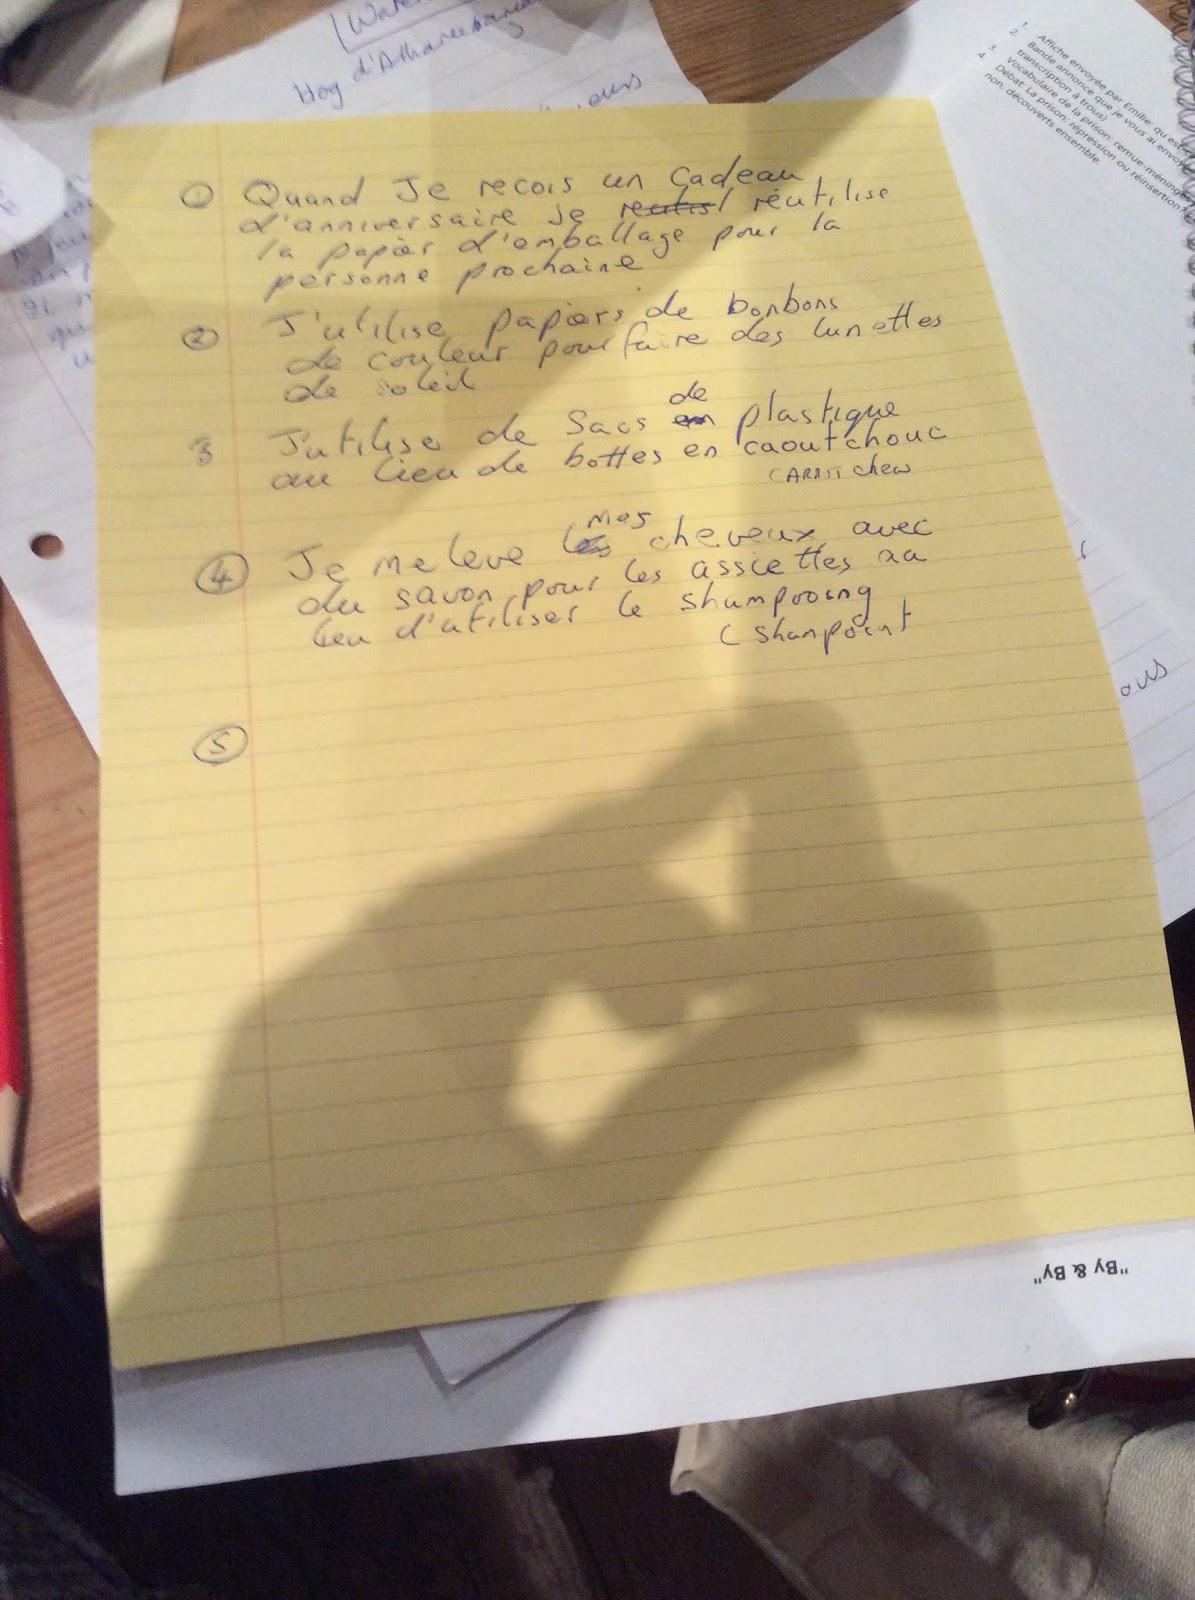 Hog
d'A
① Quand Je recois un Cadeau
d'anniversaire je reutisl réutilise
la papier d'emballage pour la
personne prochaine
② J'utilise papiers de bonbons
de couleur pour faire des lunettes
de soleil
3 J'utilise de Sacs en de plastique
au lieu de bottes en caoutchouc
④ Je me leve les mes cheveux avec
du savon pour les assiettes au
lieu d'utiliser le shampooing
( shampoint
⑤
1. Affiche envoyée par Emilie: qu'es
2. Bande annonce que je vous ai envoy
transcription à trous)
3. Vocabulaire de la prison: remue-méning
4. Débat. La prison: répression ou réinsertion
non, découverts ensemble.
ous
"By & By"